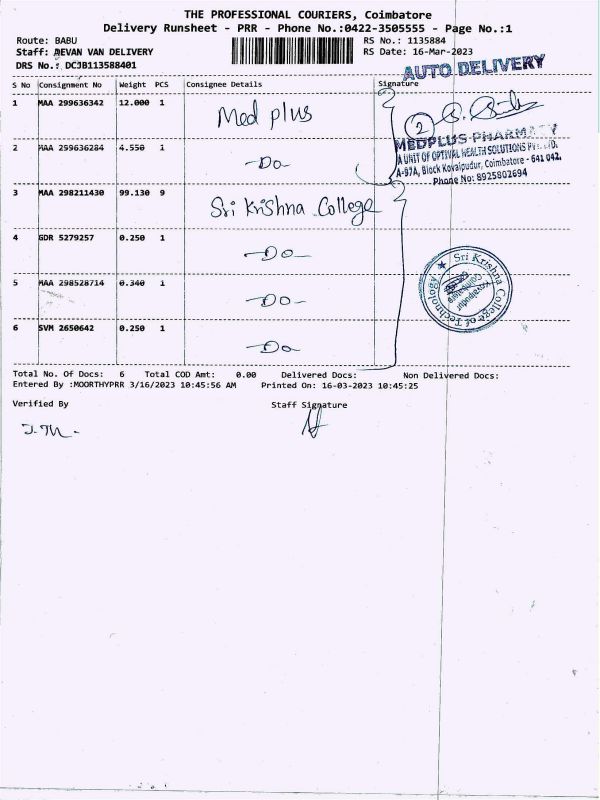 THE PROFESSIONAL COURIERS, Coimbatore
Delivery Runsheet - PRR - Phone No.:0422-3505555 - Page No.:1
Route: BABU RS No.: 1135884
Staff: DEVAN VAN DELIVERY RS Date: 16-Mar-2023
DRS No.: DCJB113588401
AUTO DELIVERY
S No Consignment No Weight PCS Consignee Details Signature
1 MAA 299636342 12.000 1 Med plus
2
2 MAA 299636284 4.550 1 -Do-
MEDPLUS PHARMACY
A UNIT OF OPTIVAL HEALTH SOLUTIONS PVT. LTD.
A-97A, Block Kovaipudur, Coimbatore - 641 042.
Phone No: 8925802694
3 MAA 298211430 99.130 9 Sri Krishna College
4 GDR 5279257 0.250 1 -Do-
5 MAA 298528714 0.340 1 -Do-
Sri Krishna College of Technology
Kovaipudur
Coimbatore
6 SVM 2650642 0.250 1 -Do
Total No. Of Docs: 6 Total COD Amt: 0.00 Delivered Docs: Non Delivered Docs:
Entered By :MOORTHYPRR 3/16/2023 10:45:56 AM Printed On: 16-03-2023 10:45:25
Verified By Staff Signature